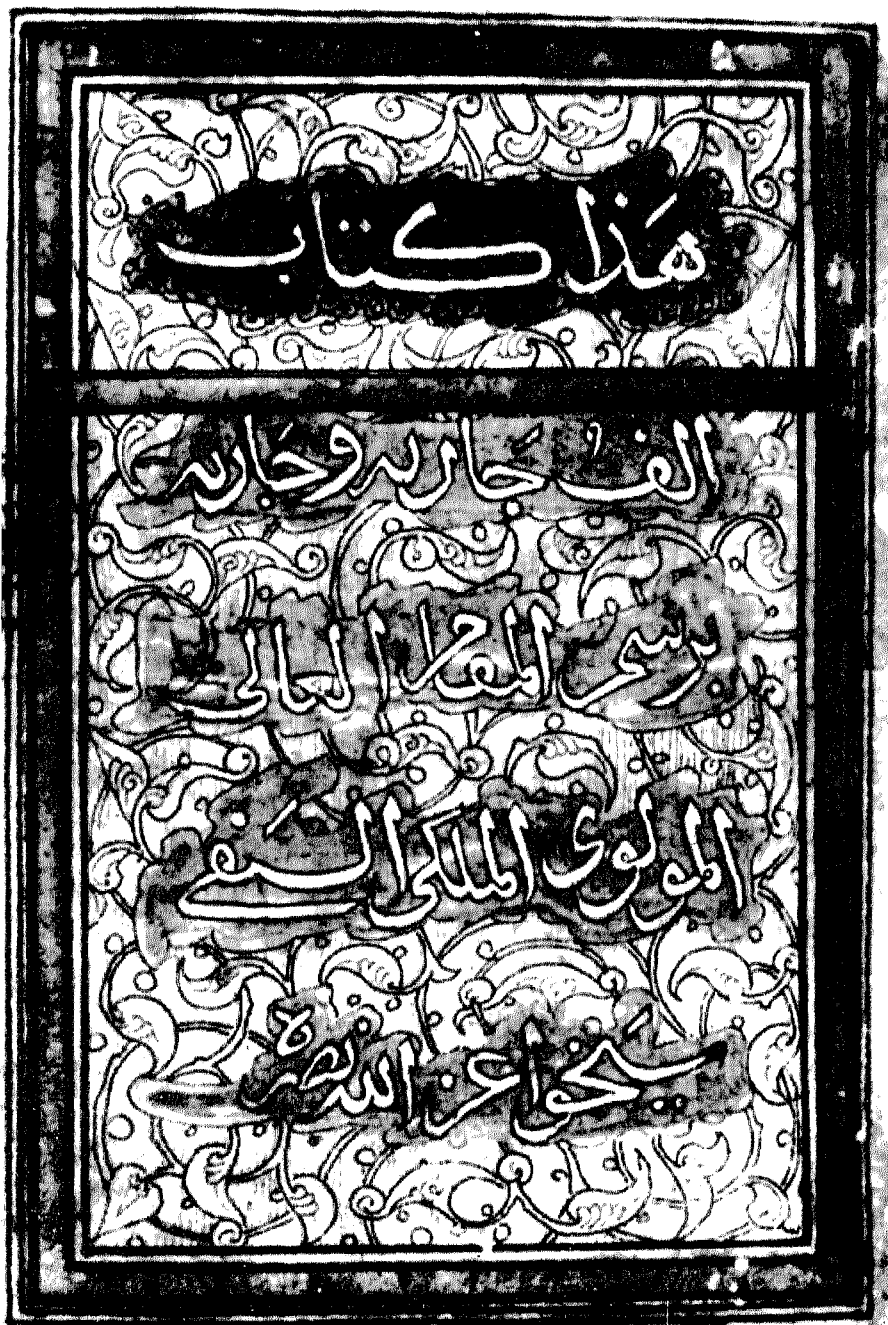 هَذا كتاب
الف جَاريه وجَاريه
برسم المقام العالى
المولوى الملكى السيفى
ينحوا عز الله نصره